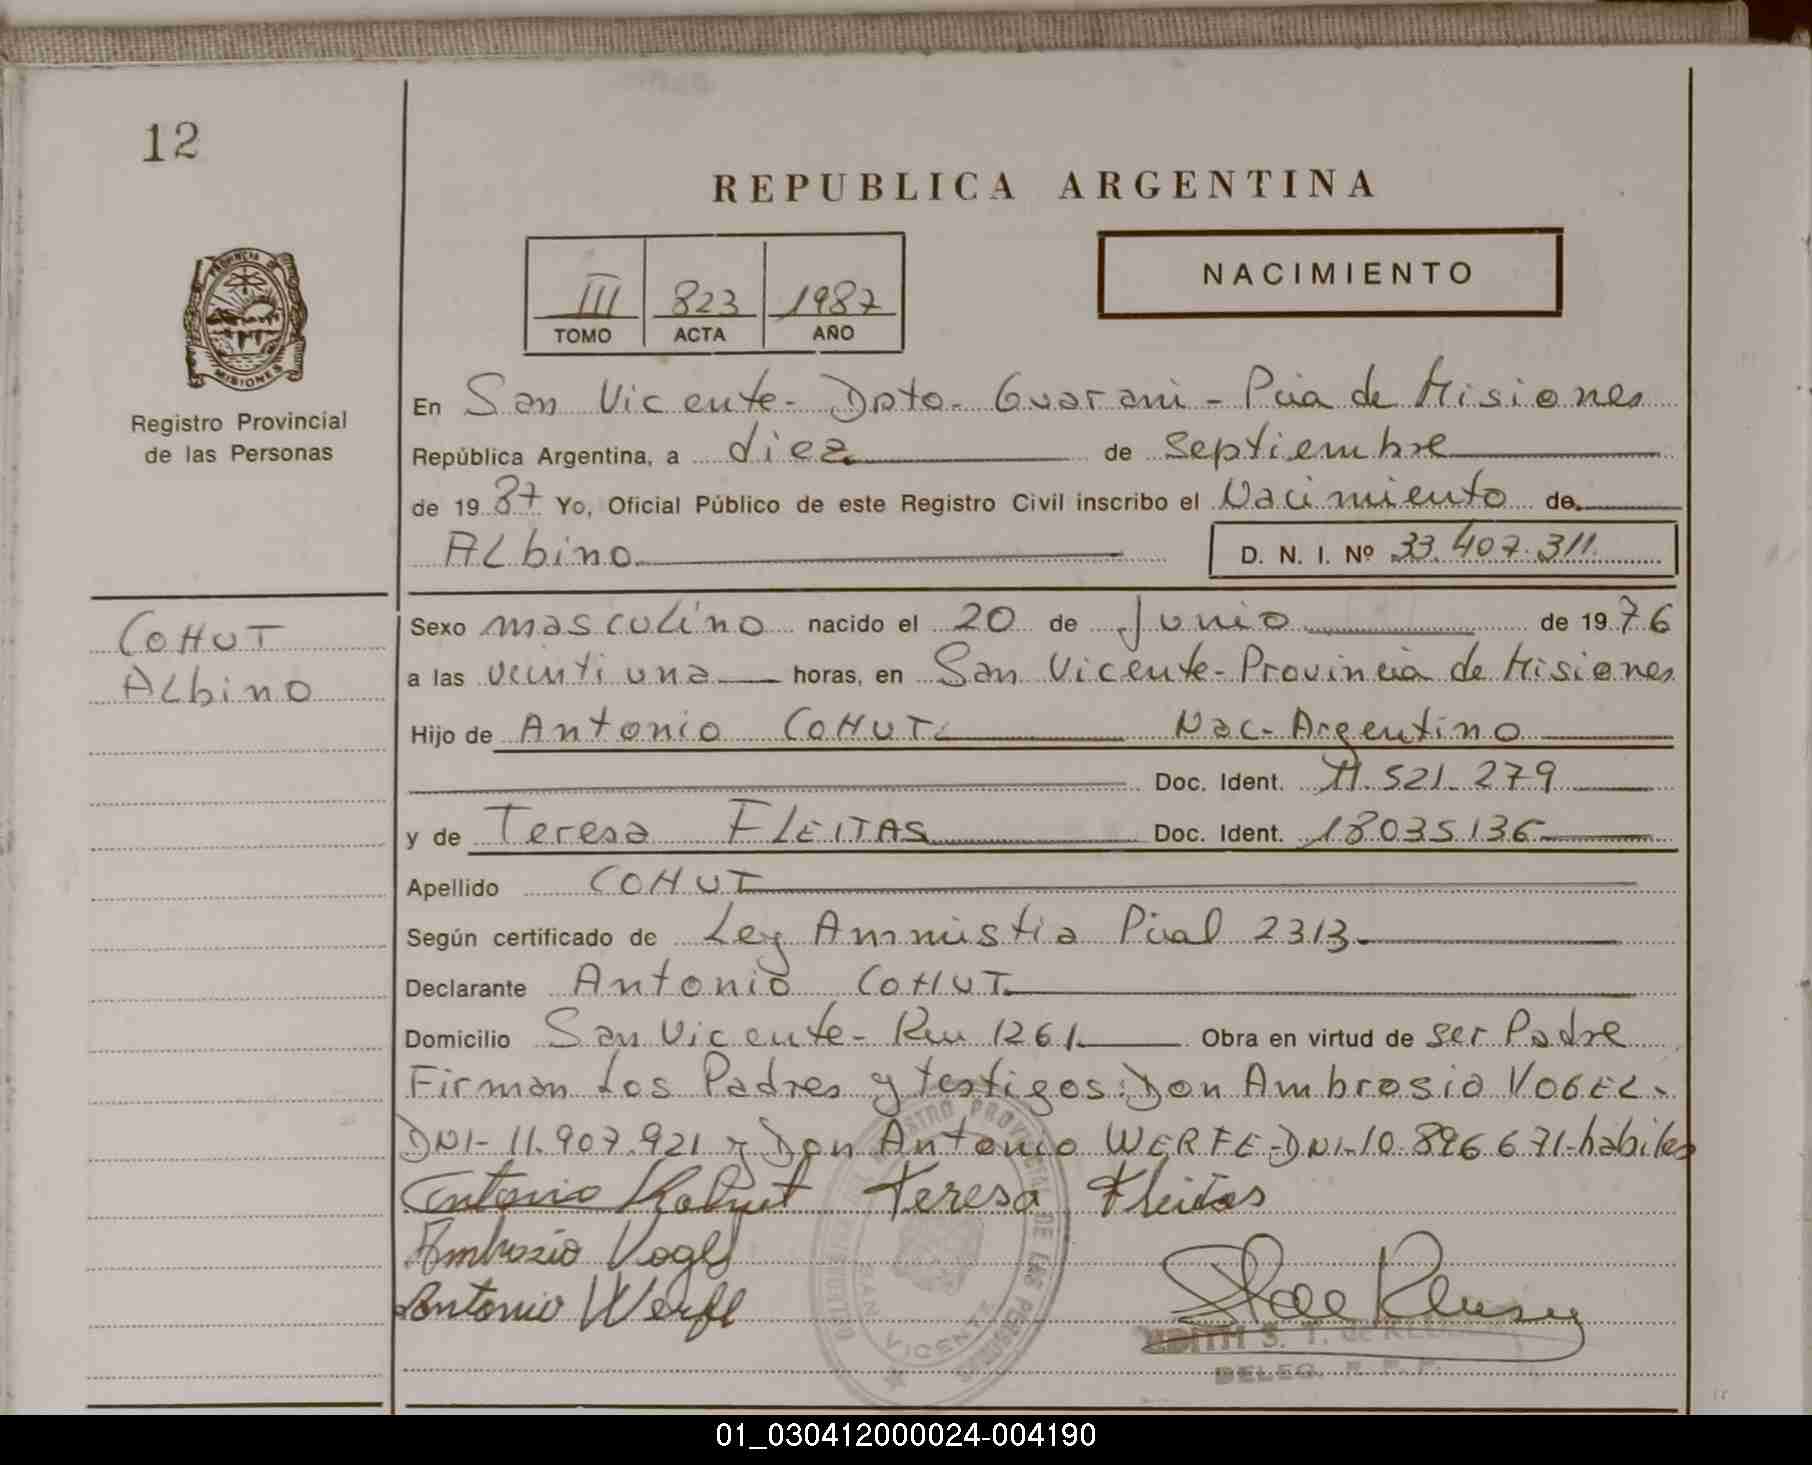 12
REPUBLICA ARGENTINA
III 823 1987
TOMO ACTA AÑO
NACIMIENTO
PROVINCIA DE
MISIONES
Registro Provincial
de las Personas
En San Vicente - Dpto - Guarani - Pcia de Misiones
República Argentina, a diez de Septiembre
de 19 87 Yo, Oficial Público de este Registro Civil inscribo el Nacimiento de
ALbino D. N. I. Nº 33.407.311
COHUT
ALbino
Sexo masculino nacido el 20 de Junio de 19 76
a las veintiuna horas, en San Vicente - Provincia de Misiones
Hijo de Antonio COHUT Nac - Argentino
Doc. Ident. 11.521.279
y de Teresa FLEITAS Doc. Ident. 18035136
Apellido COHUT
Según certificado de Ley Ammistia Pcial 2313
Declarante Antonio COHUT
Domicilio San Vicente - Km 1261 Obra en virtud de ser Padre
Firman Los Padres y testigos: Don Ambrosio VOGEL -
DNI - 11.907.921 y Don Antonio WERFE - DNI - 10.896671 - habiles
Antonio Kohut Teresa Fleitas
Ambrozio Vogel
Antonio Werfe
REGISTRO PROVINCIAL DE LAS PERSONAS
SAN VICENTE
EDITH S. T. de
DELEG. R. P. P.
01_030412000024-004190